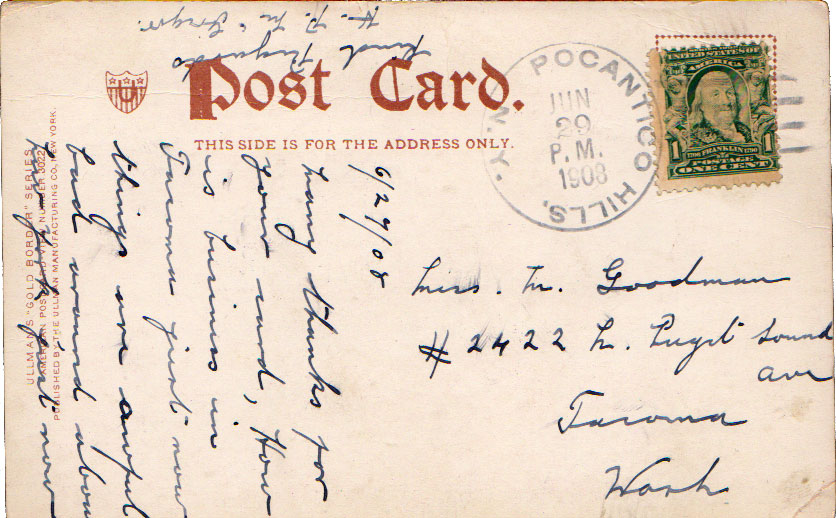 Post Card.
THIS SIDE IS FOR THE ADDRESS ONLY.
POCANTICO HILLS, N.Y.
JUN
29
P.M.
1908
UNITED STATES OF
AMERICA
1 FRANKLIN 1
POSTAGE
ONE CENT
Miss. M. Goodman
# 2422 N. Puget Sound
ave
Tacoma
Wash
6/29/08
Many thanks for
your card, How
is business in
Tacoma just now
things are awful
bad around about
New York just now
Kind Regards
ULLMAN'S "GOLD BORDER" SERIES
AMERICAN POST CARD VIEW NUMBER
PUBLISHED BY THE ULLMAN MANUFACTURING CO., NEW YORK